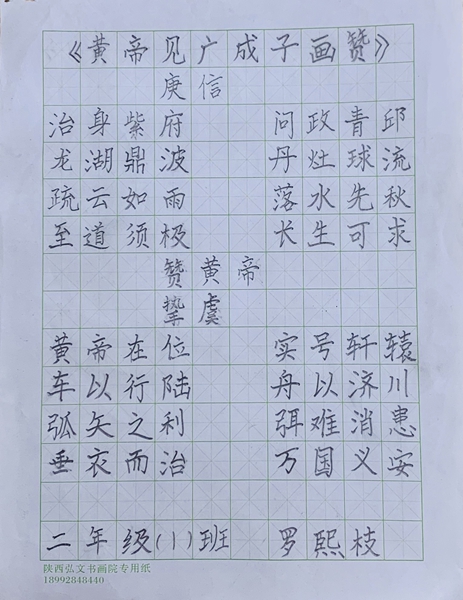 《黄帝见广成子画赞》
庚信
治身紫府 问政青邱
龙湖鼎波 丹灶球流
疏云如雨 落水先秋
至道须极 长生可求
赞黄帝
挚虞
黄帝在位 实号轩辕
车以行陆 舟以济川
弧矢之利 弭难消患
垂衣而治 万国义安
二年级(1)班 罗熙枝
陕西弘文书画院专用纸
18992848440